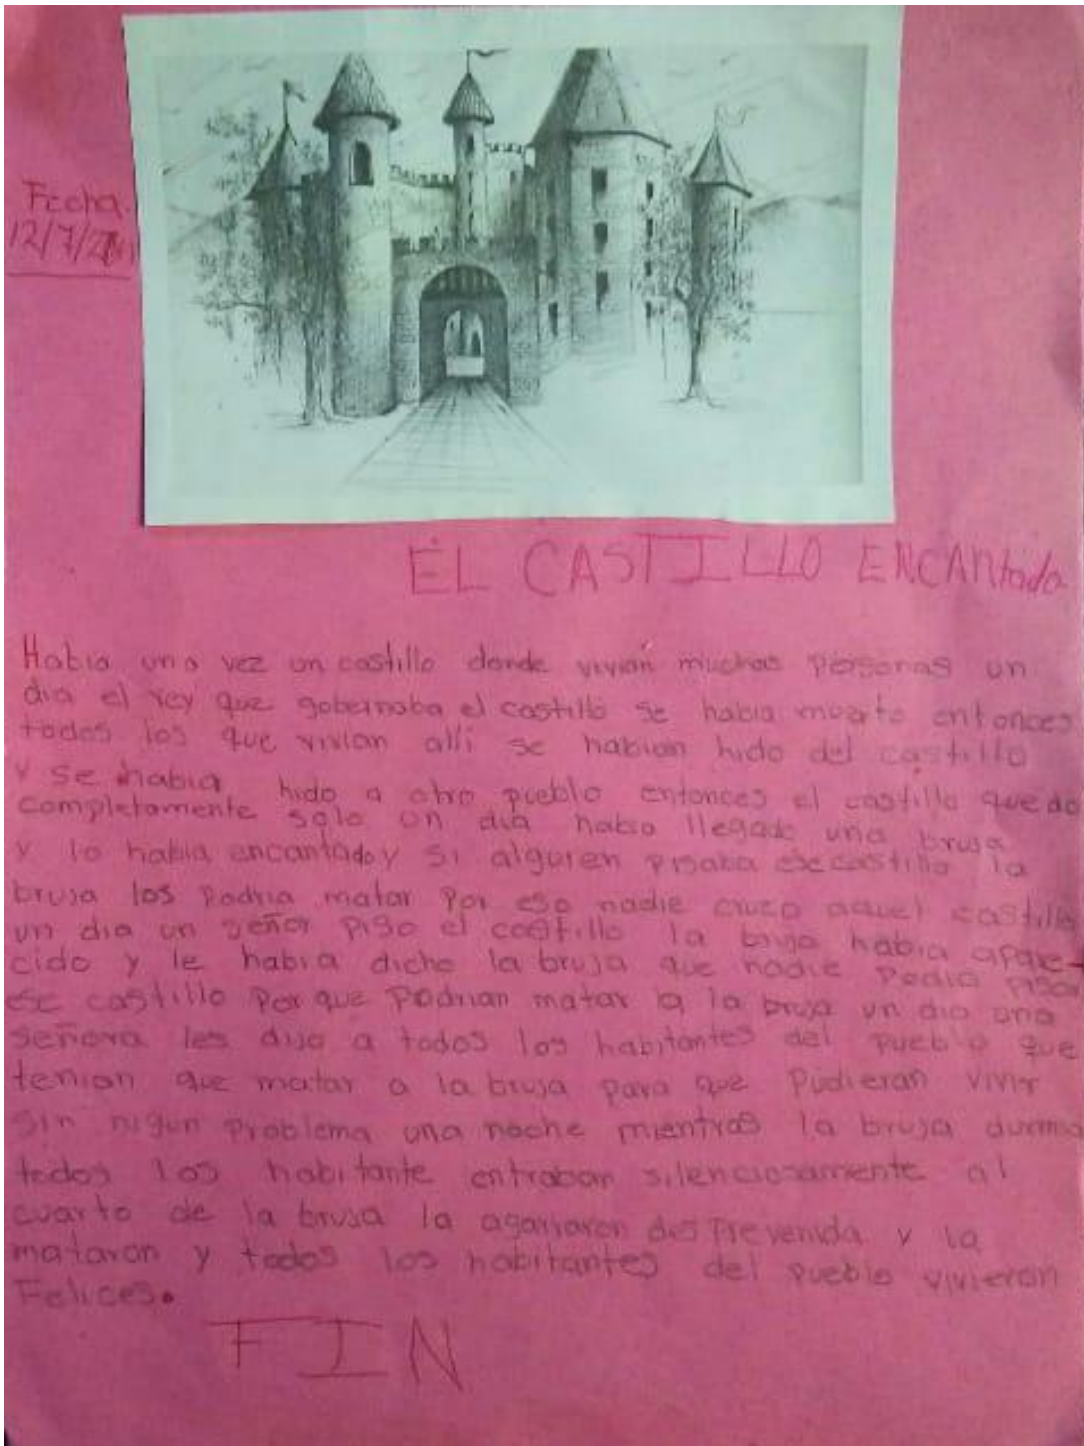 Fecha.
12/7/
EL CASTILLO ENCANtado
Habia una vez un castillo donde vivian muchas personas un
dia el rey que gobernaba el castillo se habia muerto entonces
todos los que vivian alli se habian hido del castillo
y se habia hido a otro pueblo entonces el castillo quedo
completamente solo un dia habia llegado una bruja
y lo habia encantado y si alguien pisaba ese castillo la
bruja los podria matar por eso nadie cruzo aquel castillo
un dia un señor piso el castillo la bruja habia apare-
cido y le habia dicho la bruja que nadie podia pisar
ese castillo por que podrian matar a la bruja un dia una
señora les dijo a todos los habitantes del pueblo que
tenian que matar a la bruja para que pudieran vivir
sin nigun problema una noche mientras la bruja durmia
todos los habitante entraban silenciosamente al
cuarto de la bruja la agarraron desprevenida y la
mataron y todos los habitantes del pueblo vivieron
Felices.
FIN